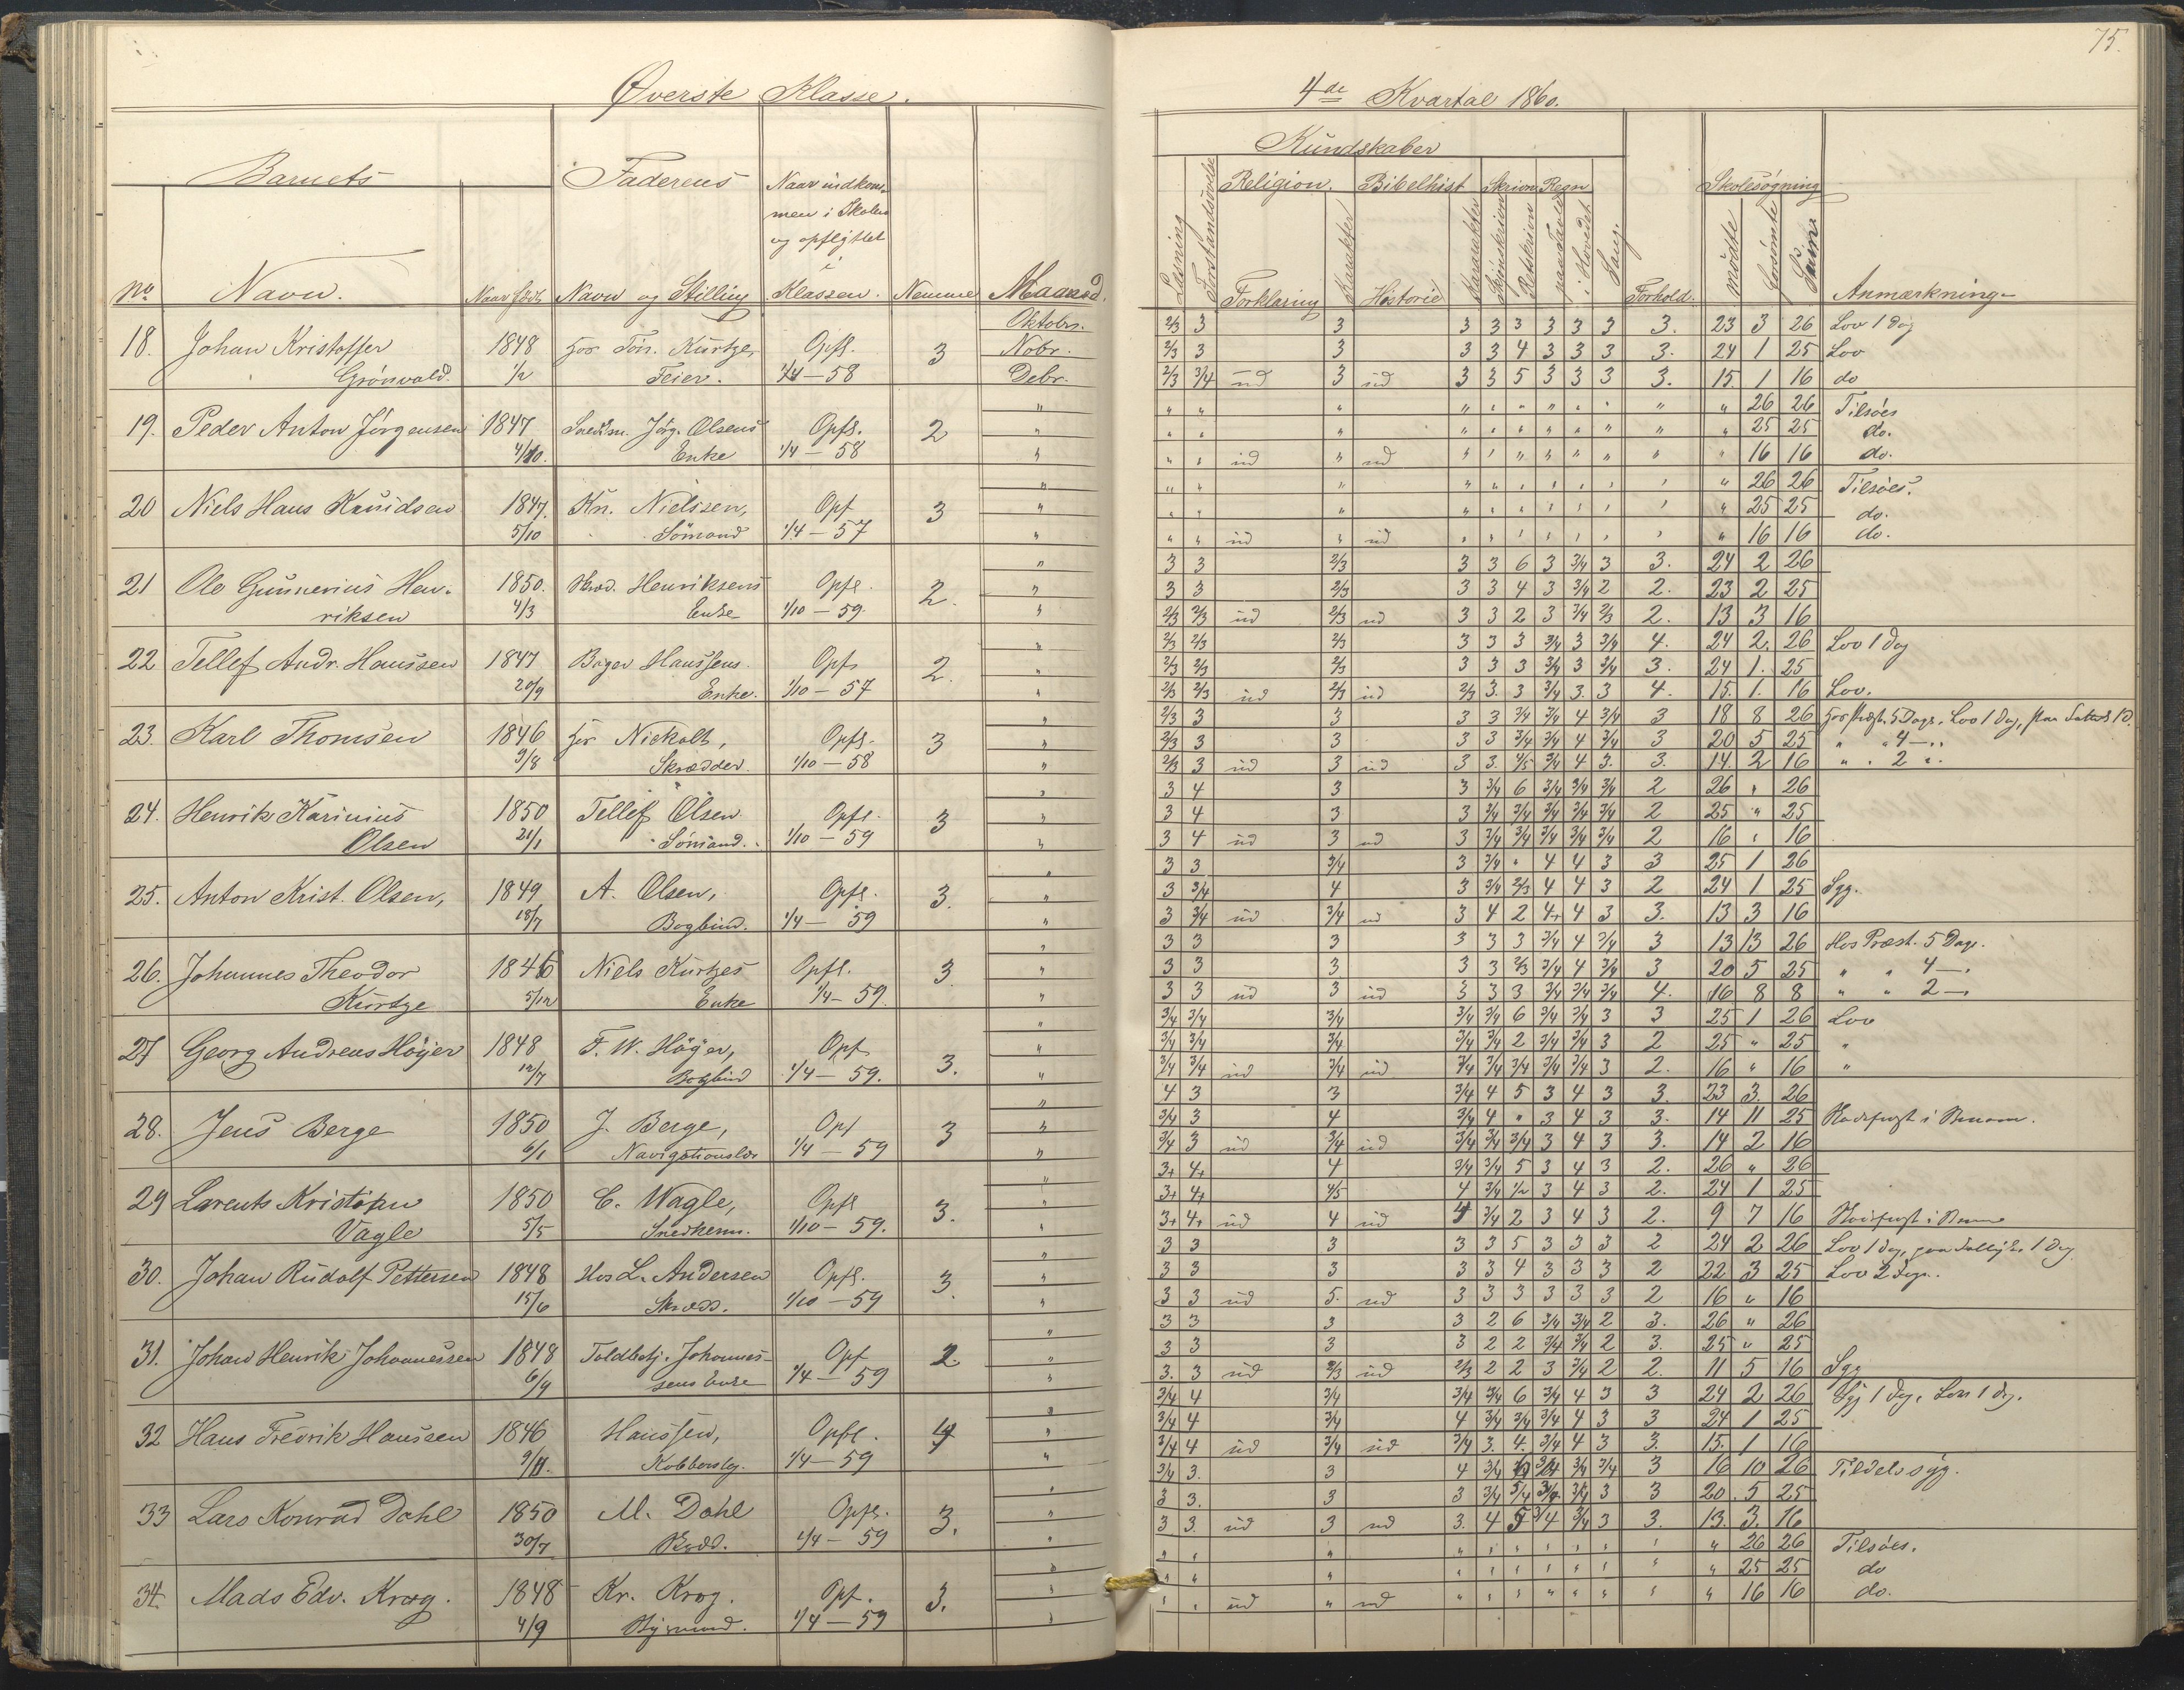 Øverste Klasse.
Barnets
Faderens
Naar indkom-
men i Skolen
og opflyttet
i
Klassen.
No
Navn.
Naar født
Navn og Stilling
Nemme
Maaned.
18. Johan Kristoffer 1848 hos Tön. Kürtze, Opfl. 3 Oktobr.
Grönvold. 1/2 Feier. 1/4 — 58 Nobr.
Debr.
19. Peder Anton Jörgensen 1847 Snedkm. Jörg. Olsens Opfl. 2
4/10. Enke 1/4 — 58
20 Niels Hans Knudsen 1847. Kn. Nielssen, Opf 3
5/10 Sömand 1/4 — 57
21 Ole Gunnerius Hen- 1850. Henriksens Opfl. 2.
riksen 4/3 Enke 1/10 — 59.
22 Tellef Andr. Hanssen 1847 Bager Hanssens Opf 2.
20/9 Enke. 1/10 — 57
23. Karl Thomsen 1846 hos Nickolt, Opfl. 3
9/8 Skrædder. 1/10 — 58
24. Henrik Karinius 1850 Tellef Olsen Opfl. 3
Olsen 21/1 Sömand. 1/10 — 59
25. Anton Krist. Olsen, 1849 A. Olsen, Opfl. 3.
18/7 Bogbind. 1/4 — 59
26. Johannes Theodor 1846 Niels Kürtzes Opfl. 3.
Kürtze 5/12 Enke 1/4 — 59.
27 Georg Andreas Höyer 1848 F. W. Höyer, Opf 3.
12/7 Bogbind 1/4 — 59.
28. Jens Berge 1850 J. Berge, Opf 3
6/1 Navigationslær 1/4 — 59
29 Larents Kristian 1850 C. Wagle, Opfl 3.
Vagle 5/5 Snedkerm. 1/10 — 59.
30. Johan Rudolf Pettersen 1848 Hos L. Andersen Opfl. 3.
15/6 Skrædd. 1/10 — 59
31. Johan Henrik Johannessen 1848 Toldbetj. Johannes- Opf 2.
6/9 sens Enke 1/4 — 59
32 Hans Fredrik Hanssen 1846 Hanssen, Opfl. 4
9/11. Kobberslg. 1/4 — 59
33 Lars Konrad Dahl 1850 M. Dahl Opfl. 3.
30/7 1/4 — 59
34. Mads Edv. Krog. 1848 Kr. Krog. Opf. 3.
4/9 1/4 — 59
75.
4de Kvartal 1860.
Kundskaber
Religion. Bibelhist Skrivn Regn Skolesögning
Læsning
Forstandsövelse
Forklaring
Karakter
Historie
Karakter
Skjönskrivn
Retskrivn
paa Tavle
i Hovedet
Sang.
Forhold.
mödte
forsömte
Anmærkning
2/3 3 3 3 3 3 3 3 3 3. 23 3 26 Lov 1 dag
2/3 3 3 3 3 4 3 3 3 3. 24 1 25 Lov
2/3 3/4 ud 3 ud 3 3 5 3 3 3 3. 15. 1 16 do
" " " " " " " " " " " 26 26 Tilsöes
" " " " " " " " " " " 25 25 do.
" " ud " ud " " " " " " " " 16 16 do.
" " " " " " " " " " " 26 26 Tilsöes.
" " " " " " " " " " " 25 25 do.
" " ud " ud " " " " " " " " 16 16 do.
3 3 2/3 3 3 6 3 3/4 3 3. 24 2 26
3 3 2/3 3 3 4 3 3/4 2 2. 23 2 25
2/3 2/3 ud 2/3 ud 3 3 2 3 3/4 2/3 2. 13 3 16
2/3 2/3 2/3 3 3 3 3/4 3 3/4 4. 24 2. 26 Lov 1 dag
2/3 2/3 2/3 3 3 3 3/4 3 3/4 3. 24 1. 25
2/3 2/3 ud 2/3 ud 2/3 3. 3 3/4 3. 3 4. 15. 1. 16 Lov.
2/3 3 3 3 3 3/4 3/4 4 3/4 3 18 8 26 hos Præst. 5 Dage, Lov 1 dag,
2/3 3 3 3 3 3/4 3/4 4 3/4 3 20 5 25 " " 4 — "
2/3 3 ud 3 ud 3 3. 4/5 3/4 4 3. 3. 14. 2 16 " " 2 "
3 4 3 3 3/4 6 3/4 3/4 3/4 2 26 " 26
3 4 3 3 3/4 3/4 3/4 3/4 3/4 2 25 " 25
3 4 ud 3 ud 3 3/4 3/4 3/4 3/4 3/4 2 16 " 16
3 3 3/4 3 3/4 " 4 4 3 3 25 1 26
3 3/4 4 3 3/4 2/3 4 4 3 2 24 1 25 Syg.
3 3/4 ud 3/4 ud 3 4 2 4+ 4 3 3. 13 3 16
3 3 3 3 3 3 3/4 4 3/4 3 13 13 26 Hos Præst. 5 Dage.
3 3 3 3 3 2/3 3/4 4 3/4 3 20 5 25 " " 4 — "
3 3 ud 3 ud 3 3 3 3/4 3/4 3/4 4. 16 8 8 " " 2 — "
3/4 3/4 3/4 3/4 3/4 6 3/4 3/4 3 3 25 1 26 Lov
3/4 3/4 3/4 3/4 3/4 2 3/4 3/4 3 2 25 " 25 "
3/4 3/4 ud 3/4 ud 3/4 3/4 3/4 3/4 3/4 3 2. 16 " 16 "
4 3 3 3/4 4 5 3 4 3 3. 23 3. 26
3/4 3 4 3/4 4 " 3 4 3 3. 14 11 25
3/4 3 ud 3/4 ud 3/4 3/4 3/4 3 4 3 3. 14 2 16
3+ 4+ 4 3/4 3/4 5 3 4 3 2. 26 " 26
3+ 4+ 4/5 4 3/4 1/2 3 4 3 2. 24 1 25
3+ 4+ ud 4 ud 4 3/4 2 3 4 3 2. 9 7 16
3 3 3 3 3 5 3 3 3 2 24 2 26 Lov 1 dag, 1 dag
3 3 3 3 3 4 3 3 3 2 22 3 25 Lov 2 dage.
3 3 ud 5. ud 3 3 3 3 3 3 2 16 " 16
3 3 3 3 2 6 3/4 3/4 2 3. 26 " 26
3 3 3 3 2 2 3/4 3/4 2 3. 25 " 25
3. 3 ud 2/3 ud 2/3 2 2 3 3/4 2 2. 11 5 16 Syg
3/4 4 3/4 3/4 3/4 6 3/4 4 3 3 24 2 26 Syg 1 dag, Lov 1 dag.
3/4 4 3/4 4 3/4 3/4 3/4 4 3 3 24 1 25
3/4 4 ud 3/4 ud 3/4 3. 4. 3/4 4 3 3. 15. 1 16
3/4 3. 3 4 3/4 6 3/4 3/4 3/4 3 16 10 26 Tildels syg.
3 3. 3 3 3/4 3/4 3/4 3/4 3 3 20. 5 25
3 3. ud 3 ud 3. 4 5 3/4 3/4 3 3. 13. 3. 16
" " " " " " " " " " " 26 26 Tilsöes.
" " " " " " " " " " " 25 25 do
" " ud " ud " " " " " " " " 16 16 do.